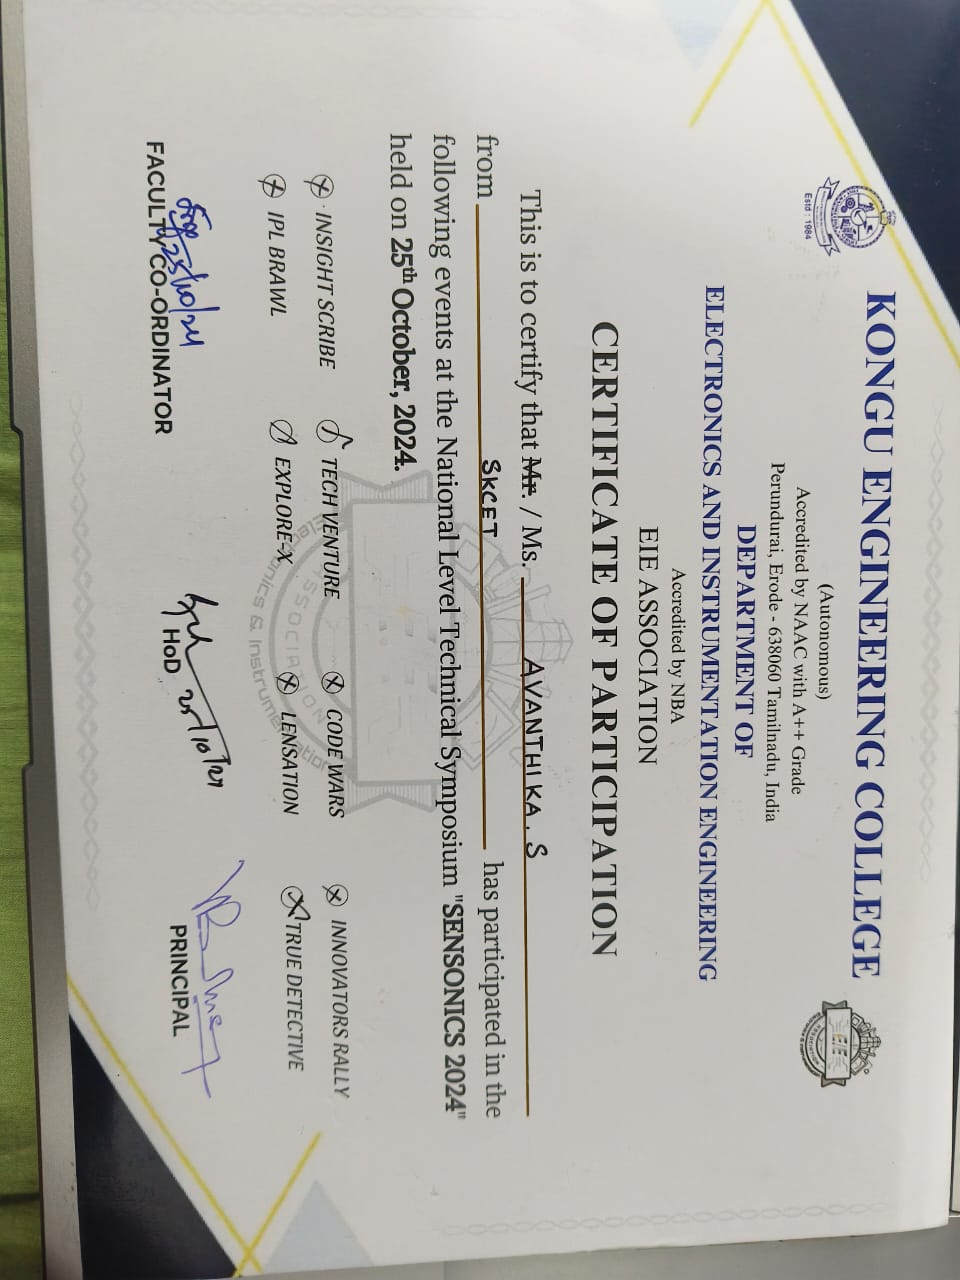 KONGU ENGINEERING COLLEGE
(Autonomous)
Accredited by NAAC with A++ Grade
Perundurai, Erode - 638060 Tamilnadu, India
Estd : 1984
EIE
DEPARTMENT OF
ELECTRONICS AND INSTRUMENTATION ENGINEERING
Accredited by NBA
EIE ASSOCIATION
CERTIFICATE OF PARTICIPATION
This is to certify that Mr. / Ms. AVANTHIKA. S
from SKCET has participated in the
following events at the National Level Technical Symposium "SENSONICS 2024"
held on 25th October, 2024.
INSIGHT SCRIBE TECH VENTURE CODE WARS INNOVATORS RALLY
IPL BRAWL EXPLORE-X LENSATION TRUE DETECTIVE
25/10/24 25/10/24
FACULTY CO-ORDINATOR HoD PRINCIPAL